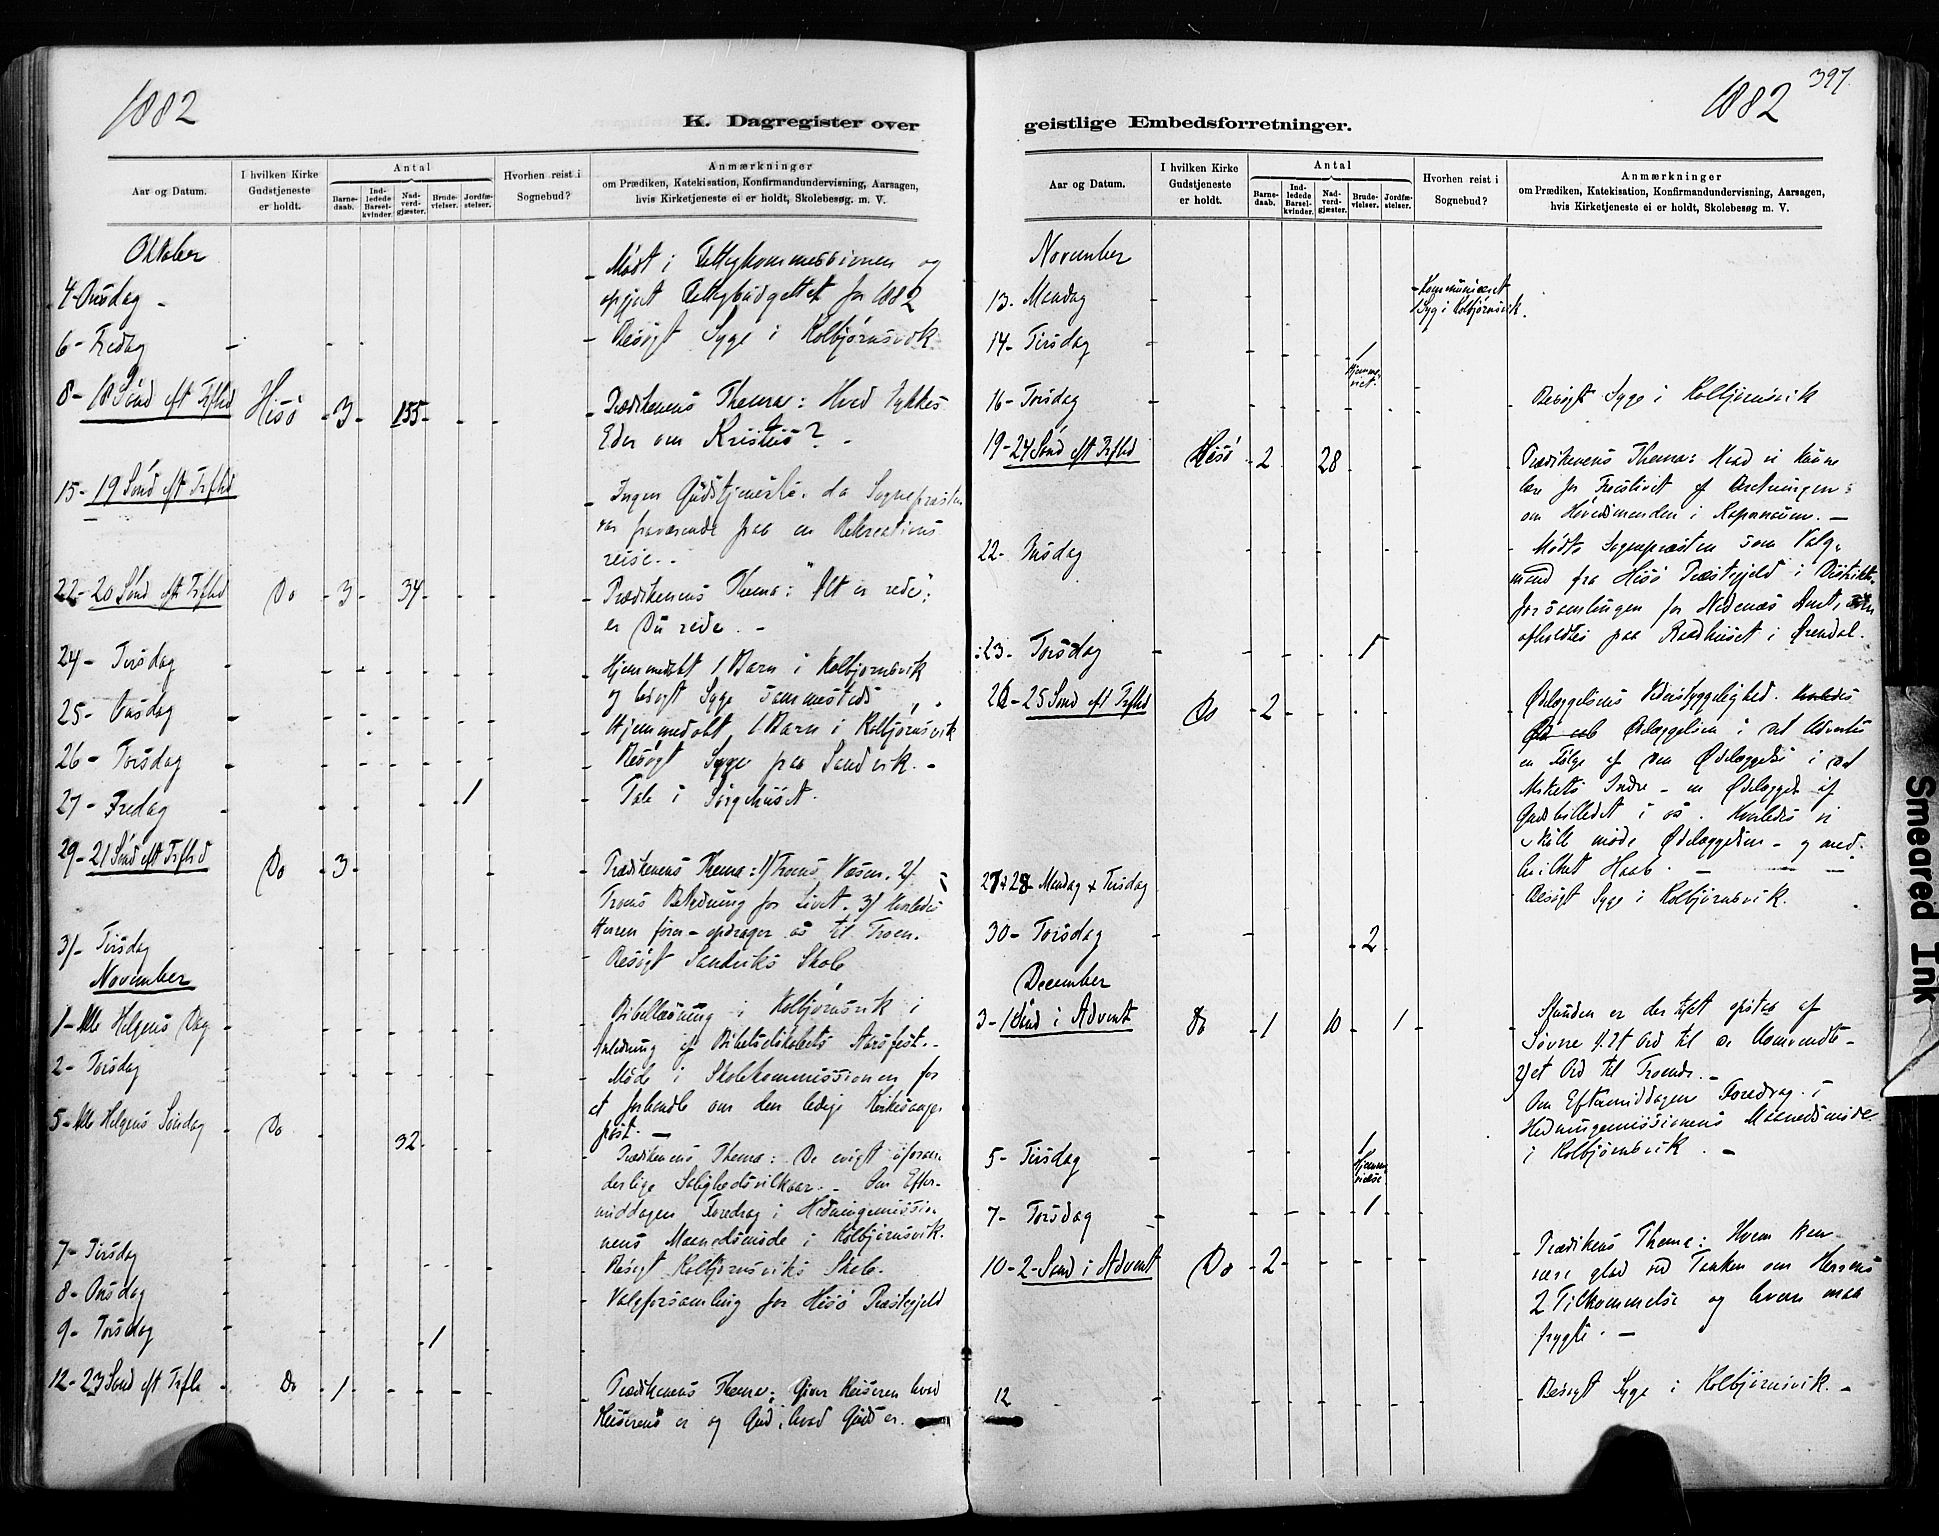 1882
K. Dagregister over
Aar og Datum.
I hvilken Kirke Gudstjeneste er holdt.
Antal
Barnedaab.
Indledede Barselkvinder.
Nadverdgjæster.
Brudevielser.
Jordfæstelser.
Hvorhen reist i Sognebud?
Anmærkninger
om Prædiken, Katekisation, Konfirmandundervisning, Aarsagen,
hvis Kirketjeneste ei er holdt, Skolebesøg m. V.
Oktober
4-Onsdag - Mødt i Fattigkommissionen og
opgjort Fattigbudgettet for 1882
6- Fredag - Besøgt Syge i Kolbjørnsvik
8- 18 Sønd eft Trftd Hisø 3 155 Prædikenens Thema: Hvad tykkes
Eder om Kristus? -
15- 19 Sønd eft Trftd Ingen Gudstjeneste, da Sognepræsten
var fraværende paa en Rekreations
reise. -
22- 20 Sønd eft Trftd Do 3 34 Prædikenens Thema: "Alt er rede";
er Du rede. -
24- Tirsdag Hjemmedøbt 1 Barn i Kolbjørnsvik
og besøgt Syge sammesteds
25- Onsdag Hjemmedøbt 1 Barn i Kolbjørnsvik
26- Torsdag Besøgt Syge paa Sandvik. -
27- Fredag 1 Tale i Sørgehuset.
29- 21 Sønd eft Trftd Do 3 Prædikenens Thema: 1) Troens Væsen. 2)
Troens Betydning for Livet. 3) Hvorledes
Herren fører - opdrager os til Troen.
31- Tirsdag Besøgt Sandviks Skole
November
1- Alle Helgens Dag Bibellæsning i Kolbjørnsvik i
Anledning af Bibelselskabets Aarsfest. -
2- Torsdag Møde i Skolekommissionen for
at forhandle om den ledige Kirkesanger
post. -
5- Alle Helgens Søndag Do 32 Prædikenens Thema: De evigt uforan
derlige Salighedsvilkaar. - Om Efter-
middagen Foredrag i Hedningemissio-
nens Maanedsmøde i Kolbjørnsvik.
7- Tirsdag Besøgt Kolbjørnsviks Skole.
8- Onsdag Valgforsamling for Hisø Præstegjeld
9- Torsdag 1
12- 23 Sønd eft Trftd Do 1 Prædikenens Thema: Giver Keiseren hvad
Keiserens er og Gud, hvad Guds er.
397.
1882
geistlige Embedsforretninger.
Aar og Datum.
I hvilken Kirke Gudstjeneste er holdt.
Antal
Barnedaab.
Indledede Barselkvinder.
Nadverdgjæster.
Brudevielser.
Jordfæstelser.
Hvorhen reist i Sognebud?
Anmærkninger
om Prædiken, Katekisation, Konfirmandundervisning, Aarsagen,
hvis Kirketjeneste ei er holdt, Skolebesøg m. V.
November
13. Mandag - Kommuniceret
1 Syg i Kolbjørnsvik.
14- Tirsdag 1
Hjemmeviet.
16- Torsdag Besøgt Syge i Kolbjørnsvik
19- 24 Sønd eft Trftd Hisø 2 28 Prædikenens Thema: Hvad vi kunne
lære for Troslivet af Beretningen
om Høvedsmanden i Kapernaum. -
22- Onsdag Mødte Sognepræsten som Valg-
mand fra Hisø Præstegjeld i Distrikts-
forsamlingen for Nedenæs Amt,
afholdtes paa Raadhuset i Arendal.
23- Torsdag 1
26- 25 Sønd eft Trftd Do 2 Ødelæggelsens Vederstyggelighed. Hvorledes
Ødelæggelsen i det
en Følge af den Ødelæggelse i det
Indre - en Ødelæggelse af
Gudsbilledet i os. Hvorledes vi
skulle møde Ødelæggelsen - og med
hvilket Haab. -
27 & 28- Mandag & Tirsdag Besøgt Syge i Kolbjørnsvik.
30- Torsdag 2
December
3- 1 Sønd i Advent Do 1 10 1 Stunden er der til at opstaa af
Søvne 1. Et Ord til de Uomvendte -
2) et Ord til Troende. -
Om Eftermiddagen Foredrag i
Hedningemissionens Maanedsmøde
i Kolbjørnsvik. -
5- Tirsdag 1
Hjemmevielse
7- Torsdag 1
10- 2- Sønd i Advent Do 2 Prædikens Thema: Hvem kan
være glad ved Tanken om Herrens
2 Tilkommelse og hvem maa
frygte. -
12 Besøgt Syge i Kolbjørnsvik. -
Smeared Ink